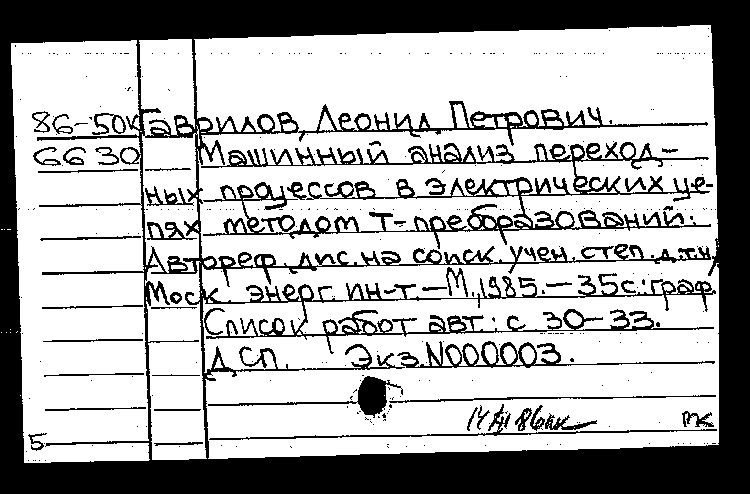 86-50к Гаврилов, Леонид Петрович.
6630 Машинный анализ переход-
ных процессов в электрических це-
пях методом Т-преобразований:
Автореф. дис. на соиск. учен. степ. д.т.н/
Моск. энерг. ин-т. — М., 1985. — 35с.: граф.
Список работ авт.: с 30-33.
ДСП. Экз. N000003.
5